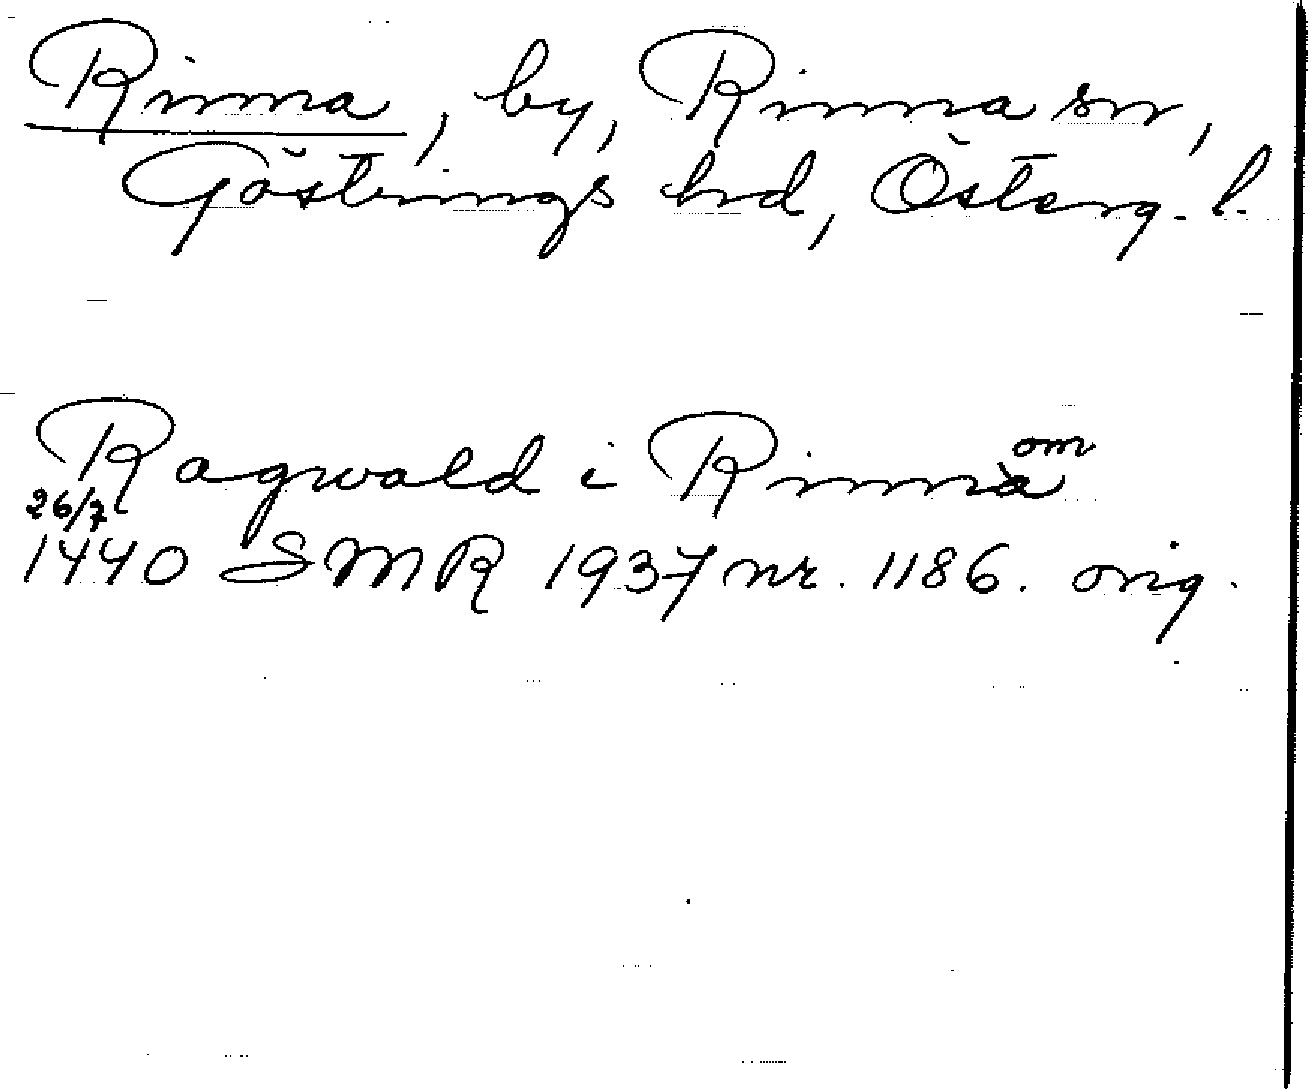 Rinna, by, Rinna sn,
Göstrings hd, Österg. l.
Ragwald i Rinna om
26/7
1440 SMR 1937 nr. 1186. orig.